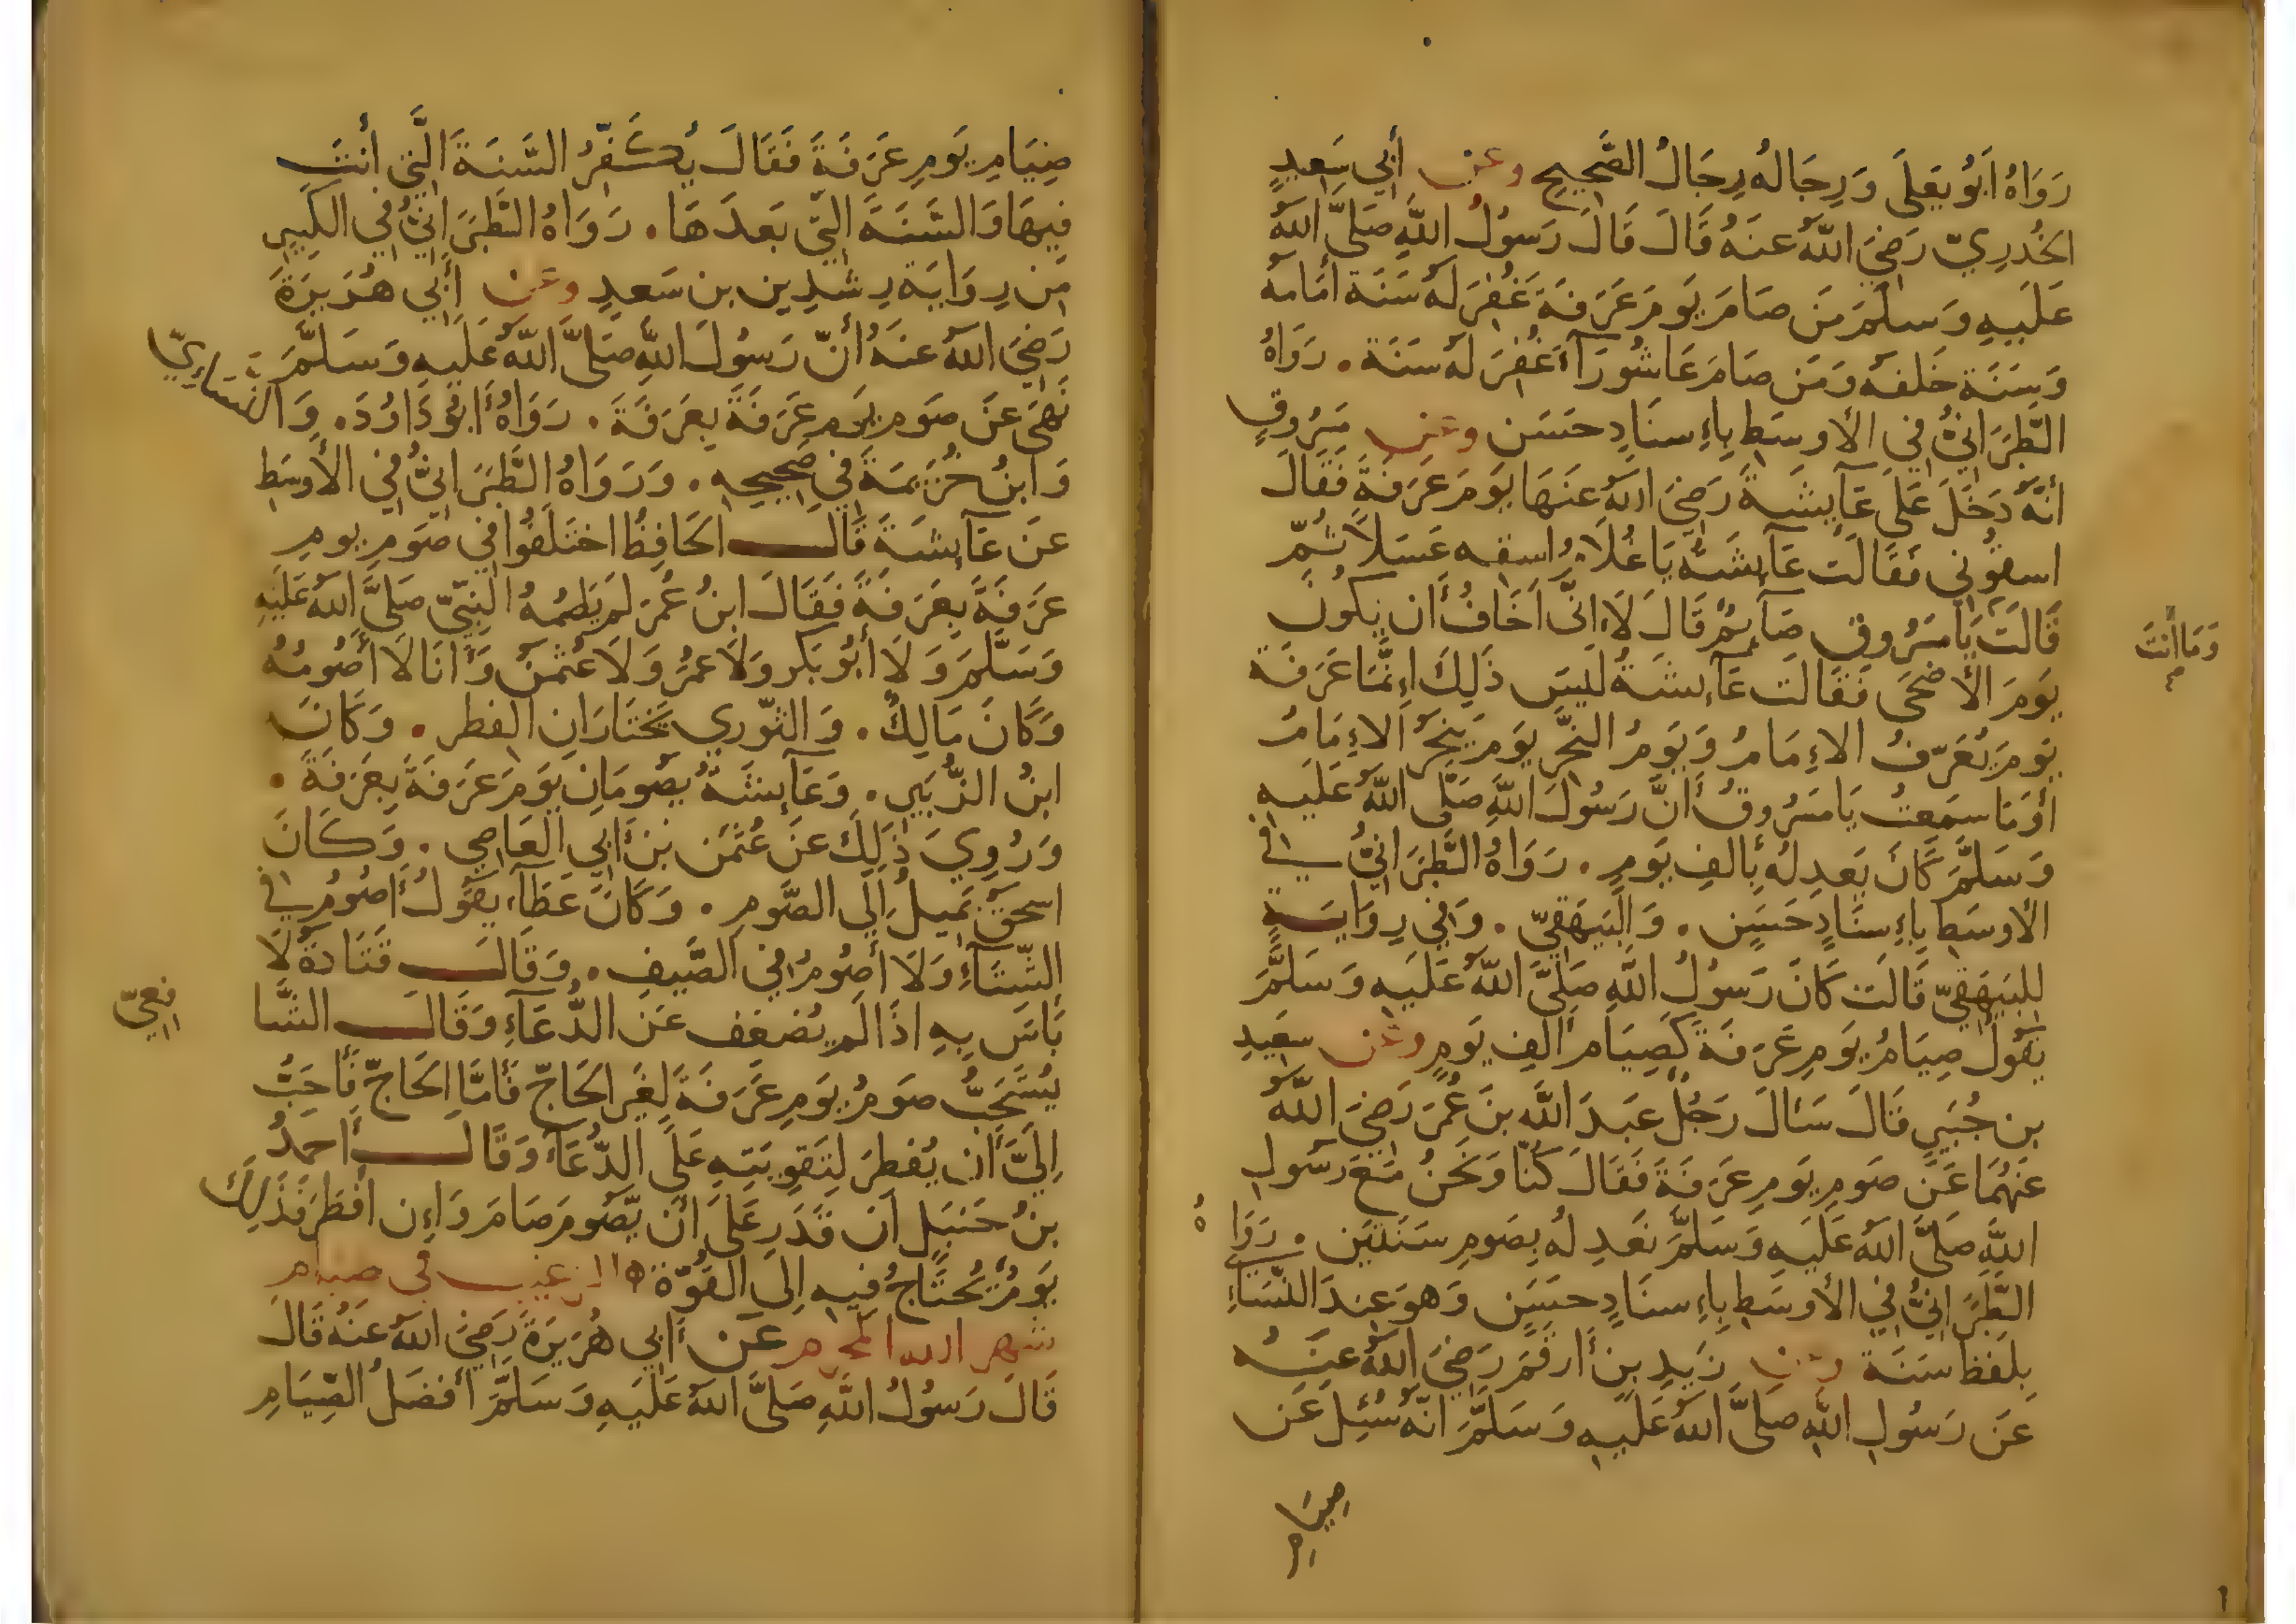 رَوَاهُ اَبُو يَعلَى وَرِجَالُهُ رِجَالُ الصَّحِيحِ وعن أَبِي سَعِيدٍ
الخُدرِيّ رَضِيَ اللَّهُ عَنهُ قَالَ قَالَ رَسُولُ اللَّهِ صَلَّى اللَّهُ
عَلَيهِ وَسَلَّمَ مَن صَامَ يَومَ عَرَفَةَ غُفِرَ لَهُ سَنَة أَمَامَه
وَسَنَة خَلفَه وَمَن صَامَ عَاشُورَآءَ غُفِرَ لَهُ سَنَة . رَوَاهُ
الطَّبَرَانِيُّ فِي الأَوسَطِ بِإِسنَادٍ حَسَن وعن مَسرُوقٍ
أَنَّهُ دَخَلَ عَلَى عَآئِشَةَ رَضِيَ اللهُ عَنهَا يَومَ عَرَفَةَ فَقَالَ
اسقُونِي فَقَالَت عَآئِشَةُ يَا غُلَامُ اسقِه عَسَلاً ثُمّ
قَالَت يَا مَسرُوق صَآئِمٌ قَالَ لَا اِنِّي اَخَافُ أَن يَكُونَ
وَمَا أَنتَ
يَومَ الأَضحَى فَقَالَت عَآئِشَةُ لَيسَ ذَلِكَ اِنَّمَا عَرَفَة
يَومَ يُعَرّفُ الاِمَامُ وَيَومُ النَّحرِ يَومَ يَنحَرُ الاِمَامُ
أَوَمَا سَمِعتَ يَا مَسرُوقُ أَنَّ رَسُولَ اللَّهِ صَلَّى اللَّهُ عَلَيهِ
وَسَلَّمَ كَانَ يَعدِلُهُ بِأَلفِ يَومٍ . رَوَاهُ الطَّبَرَانِيُّ فِي
الأَوسَطِ بِإِسنَادٍ حَسَنٍ . وَالبَيهَقِيّ . وَفِي رِوَايَة
لِلبَيهَقِيّ قَالَت كَانَ رَسُولُ اللَّهِ صَلَّى اللَّهُ عَلَيهِ وَسَلَّمَ
يَقُولُ صِيَامُ يَومِ عَرَفَةَ كَصِيَامِ أَلفِ يَومٍ وعن سَعِيدِ
بنِ جُبَيرٍ قَالَ سَئَالَ رَجُلٌ عَبدَ اللَّهِ بنَ عُمَرَ رَضِيَ اللَّهُ
عَنهُمَا عَن صَومِ يَومِ عَرَفَةَ فَقَالَ كُنَّا وَنَحنُ مَعَ رَسُولِ
اللَّهِ صَلَّى اللَّهُ عَلَيهِ وَسَلَّمَ نَعدِلُهُ بِصَومِ سَنَتَينِ . رَوَاهُ
الطَّبَرَانِيُّ فِي الأَوسَطِ بِإِسنَادٍ حَسَنٍ وَهوَ عِندَ النَّسَاءِي
بِلَفظِ سَنَة وعن زَيدِ بنِ أَرقَمَ رَضِيَ اللَّهُ عَنهُ
عَن رَسُولِ اللَّهِ صَلَّى اللَّهُ عَلَيهِ وَسَلَّمَ اَنَّهُ سُئِلَ عَن
صِيَامِ
صِيَامِ يَومِ عَرَفَةَ فَقَالَ يُكَفِّرُ السَّنَةَ الَّتِي أَنتَ
فِيهَا وَالسَّنَةَ الَّتِي بَعدَهَا . رَوَاهُ الطَّبَرَانِيُّ فِي الكَبِيرِ
مِن رِوَايَةِ رِشدِين بن سَعدٍ وعن أَبِي هُرَيرَةَ
رَضِيَ اللَّهُ عَنهُ أَنّ رَسُولَ اللَّهِ صَلَّى اللَّهُ عَلَيهِ وَسَلَّمَ
نَهَى عَن صَومِ يَومِ عَرَفَةَ بِعَرَفَةَ . رَوَاهُ أَبُو دَاوُدَ . وَالنَّسَاءِيّ
وَابنُ خُزَيمَةَ فِي صَحِيحِهِ . وَرَوَاهُ الطَّبَرَانِيُّ فِي الأَوسَطِ
عَن عَآئِشَةَ قَالَ الحَافِظُ اختَلَفُوا فِي صَومِ يَومِ
عَرَفَةَ بِعَرَفَةَ فَقَالَ ابنُ عُمَرَ لَم يَصُمهُ النَّبِيّ صَلَّى اللَّهُ عَلَيهِ
وَسَلَّمَ وَلَا أَبُو بَكر وَلَا عُمَرُ وَلَا عُثمَنُ وَأَنَا لَا أَصُومُهُ
وَكَانَ مَالِكٌ . وَالثَّورِي يَختَارَانِ الفِطرَ . وَكَانَ
ابنُ الزُّبَيرِ . وَعَآئِشَةُ يَصُومَانِ يَومَ عَرَفَةَ بِعَرَفَةَ .
وَرُوِيَ ذَلِكَ عَن عُثمَنَ بنِ أَبِي العَاصِي . وَكَانَ
اسحَقُ يَمِيلُ اِلَى الصَّومِ . وَكَانَ عَطَآء يَقُولُ أَصُومُ فِي
الشّتَآءِ وَلَا أَصُومُ فِي الصَّيفِ . وَقَالَ قَتَادَةُ لَا
بَأسَ بِهِ اِذَا لَم يُضعِف عَنِ الدُّعَآءِ وَقَالَ الشَّا
فِعِيّ
يُستَحَبُّ صَومُ يَومِ عَرَفَةَ لِغَيرِ الحَاجّ فَأَمَّا الحَاجّ فَأَحَبُّ
اِلَيَّ أَن يُفطِرَ لِتَقوِيَتِهِ عَلَى الدُّعَآءِ وَقَالَ أَحمَدُ
بنُ حَنبَلٍ اِن قَدَرَ عَلَى أَن يَّصُومَ صَامَ وَاِن أَفطَرَ فَذَلِكَ
يَومٌ يُحتَاجُ فِيهِ اِلَى القُوَّةِ ه الترغيب في صيام
شهر الله المحرم عَن أَبِي هُرَيرَةَ رَضِيَ اللَّهُ عَنهُ قَالَ
قَالَ رَسُولُ اللَّهِ صَلَّى اللَّهُ عَلَيهِ وَسَلَّمَ أَفضَلُ الصِّيَامِ